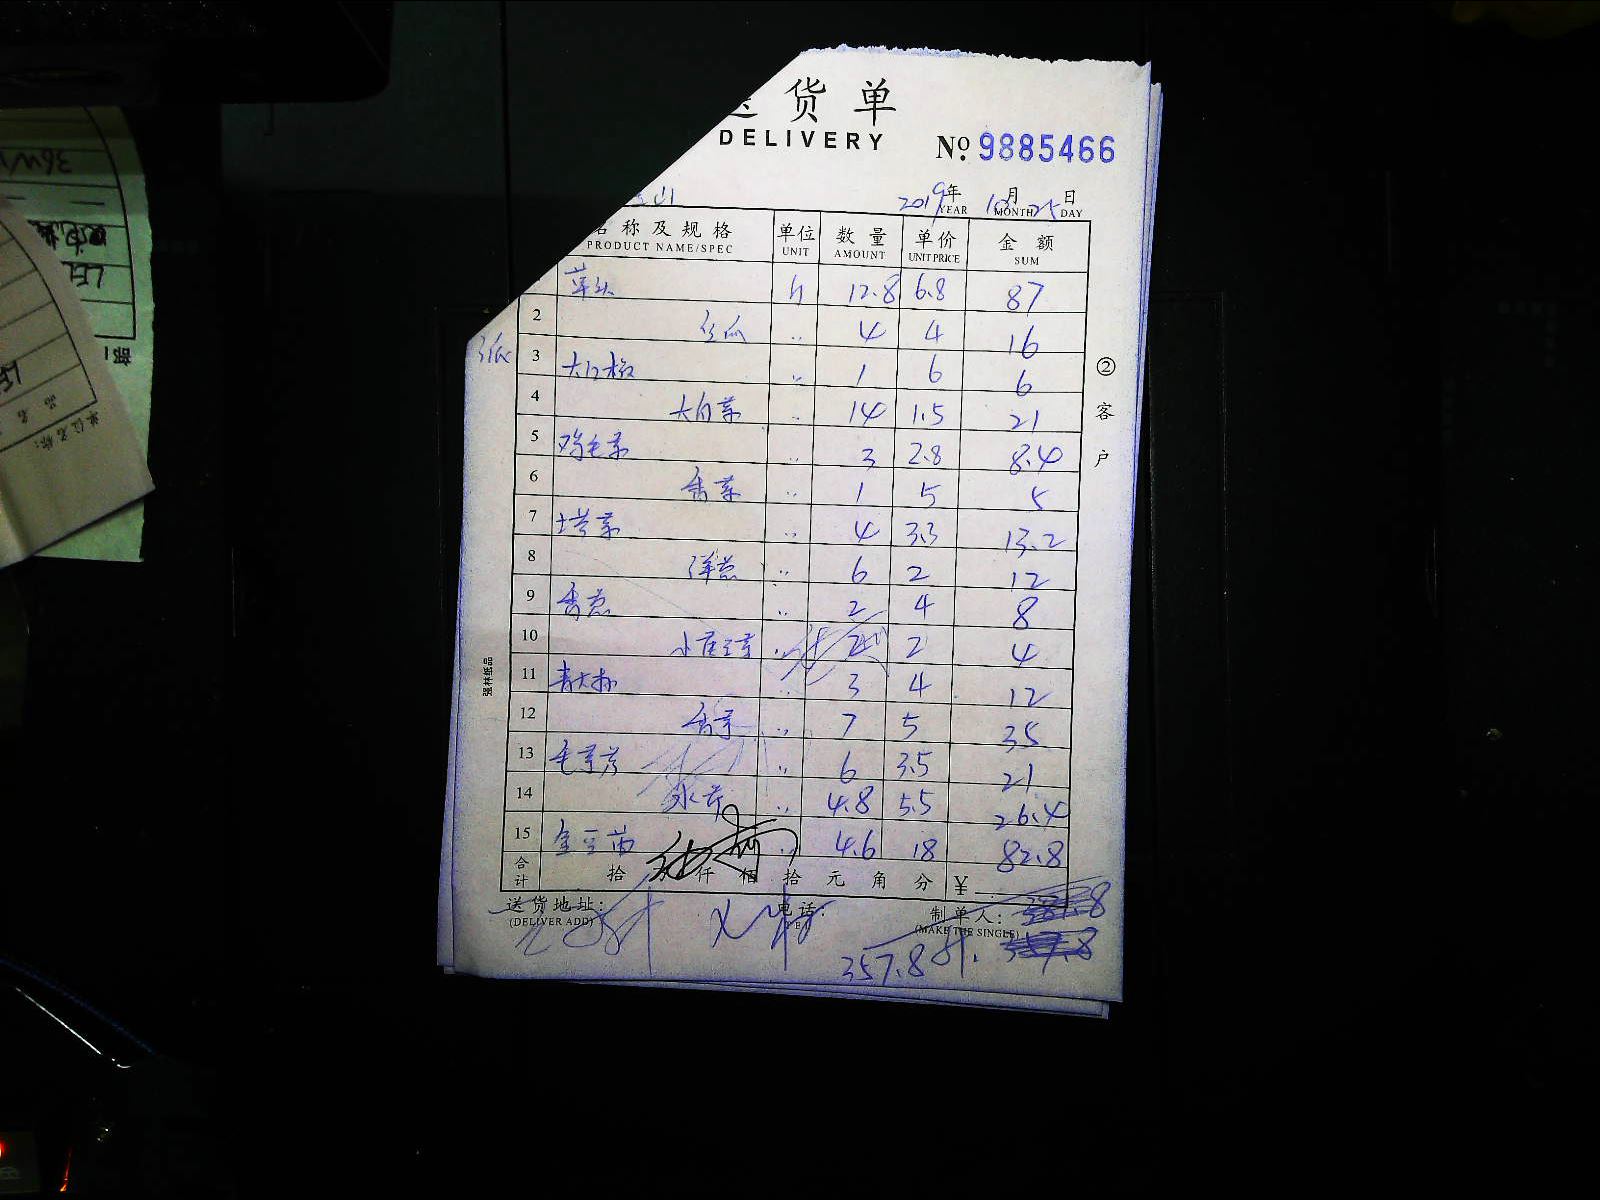 送货单
DELIVERY
No. 9885466
2019年 10月 25日
YEAR MONTH DAY
名称及规格 单位 数量 单价 金额
PRODUCT NAME/SPEC UNIT AMOUNT UNIT PRICE SUM
草头 斤 12.8 6.8 87
2 丝瓜 〃 4 4 16
3 〃 1 6 6
4 大白菜 〃 14 1.5 21
5 鸡毛菜 〃 3 2.8 8.4
6 香菜 〃 1 5 5
7 塔菜 〃 4 3.3 13.2
8 洋葱 〃 6 2 12
9 香葱 〃 2 4 8
10 〃 2 2 4
11 〃 3 4 12
12 〃 7 5 35
13 〃 6 3.5 21
14 水芹 〃 4.8 5.5 26.4
15 金豆苗 〃 4.6 18 82.8
合计 拾 万 仟 佰 拾 元 角 分 ¥
送货地址: 电话: 制单人:
(DELIVER ADD) (MAKE THE SINGLE)
357.8
②客户
强林纸品